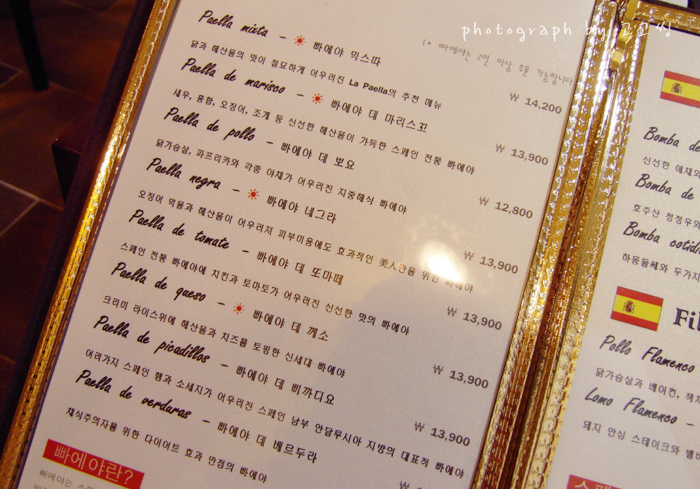 photograph by 고고씽
Paella mixta - 빠에야 믹스따
(* 빠에야는 2인 이상 주문 가능합니다
닭과 해산물의 맛이 절묘하게 어우러진 La Paella의 추천 메뉴
₩ 14,200
Paella de marisco - 빠에야 데 마리스꼬
새우, 홍합, 오징어, 조개 등 신선한 해산물이 가득한 스페인 전통 빠에야
₩ 13,900
Paella de pollo - 빠에야 데 뽀요
닭가슴살, 파프리카와 각종 야채가 어우러진 지중해식 빠에야
₩ 12,800
Paella negra - 빠에야 네그라
오징어 먹물과 해산물이 어우러져 피부미용에도 효과적인 美人만을 위한 빠에야
₩ 13,900
Paella de tomate - 빠에야 데 또마떼
스페인 전통 빠에야에 치킨과 토마토가 어우러진 신선한 맛의 빠에야
₩ 13,900
Paella de queso - 빠에야 데 께소
크리미 라이스위에 해산물과 치즈를 토핑한 신세대 빠에야
₩ 13,900
Paella de picadillos - 빠에야 데 삐까디요
여러가지 스페인 햄과 소세지가 어우러진 스페인 남부 안달루시아 지방의 대표적 빠에야
₩ 13,900
Paella de verduras - 빠에야 데 베르두라
채식주의자를 위한 다이어트 효과 만점의 빠에야
빠에야란?
빠에야는
Bomba de
신선한 야채와
Bomba de
호주산 청정우와
Bomba cotidi
하몽몽쎄와 두가지
Fil
Pollo Flamenco
닭가슴살과 베이컨, 잭치
Lomo Flamenco -
돼지 안심 스테이크와 별비
스페